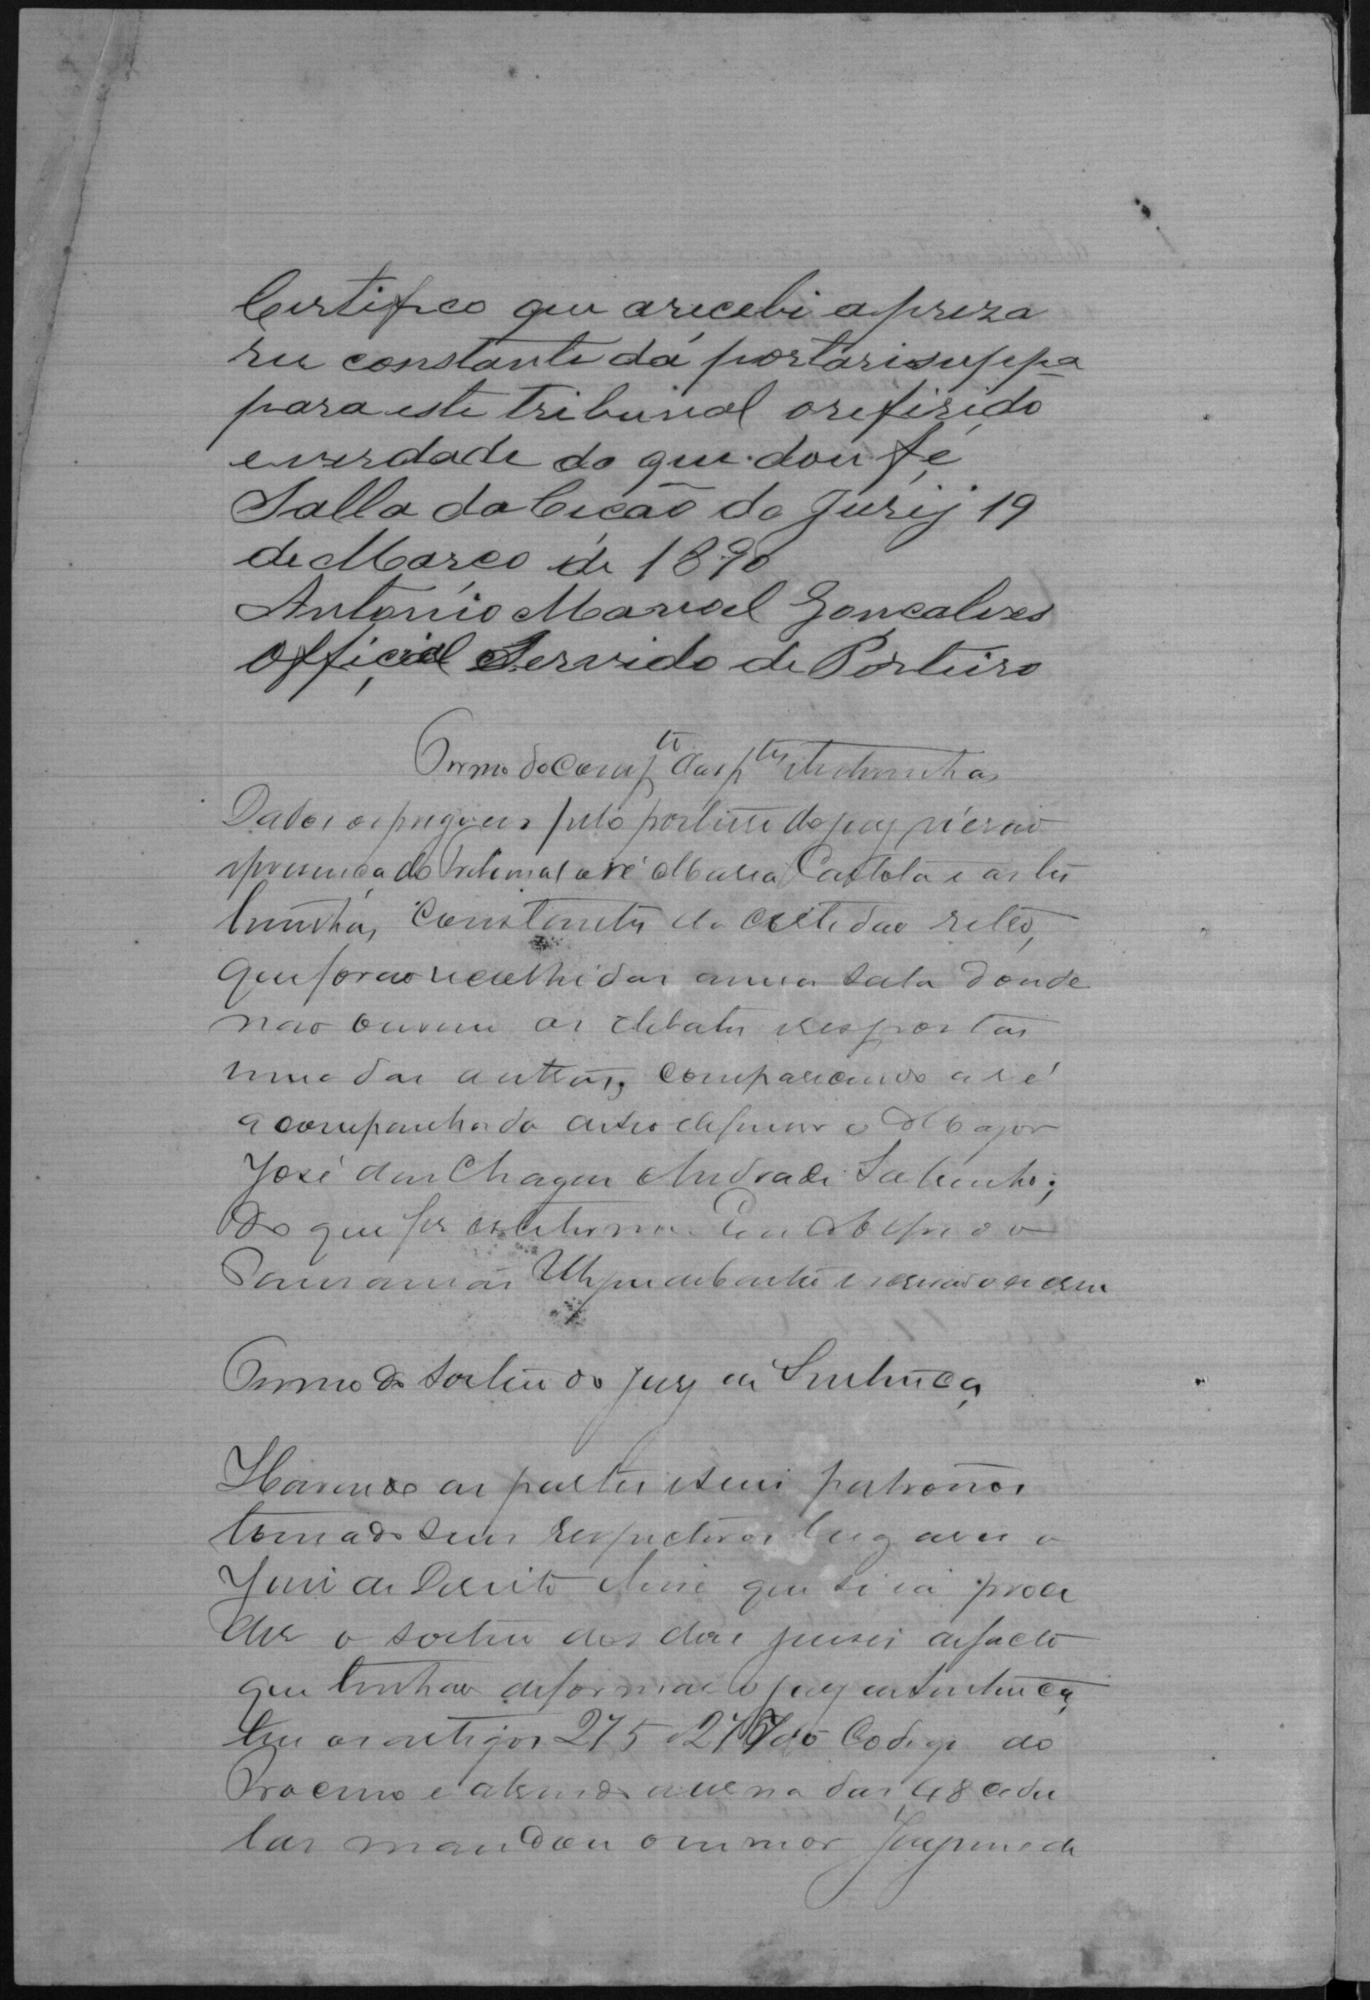 Certifico que a recebi a preza
reu constante da portari supp.a
para este tribunal o refirido
e verdade do que dou fé
Salla da Ceção do Jurij 19
de Março de 1890
Antonio Manoel Gonçalves
Official Servido de Porteiro
Termo de comp.te das p.tes e testemunhas
Dados os pregoens pelo porteiro do jury vierão
a presença do tribunal a ré Maria Castola e as tes
temunhas, constantes da certidão retro,
que forão recolhidas a uma sala donde
não ouvem os debates e respostas
uma das outras, comparecendo a ré
acompanhada de seo defensor o Major
José das Chagas Andrade Sobrinho;
do que fiz este termo
escrivão o escrevi
Termo do sorteio do jury de Sentença
Havendo as partes e seus patronos
tomado seus respectivos lugares o
Juiz de Direito disse que se ia proce
der o sorteio dos doze juises de facto
que tinhão de formar o jury de sentença,
leu os artigos 275 e 277 do Codigo do
Processo e abrindo a urna das 48 cedu
las mandou o menor